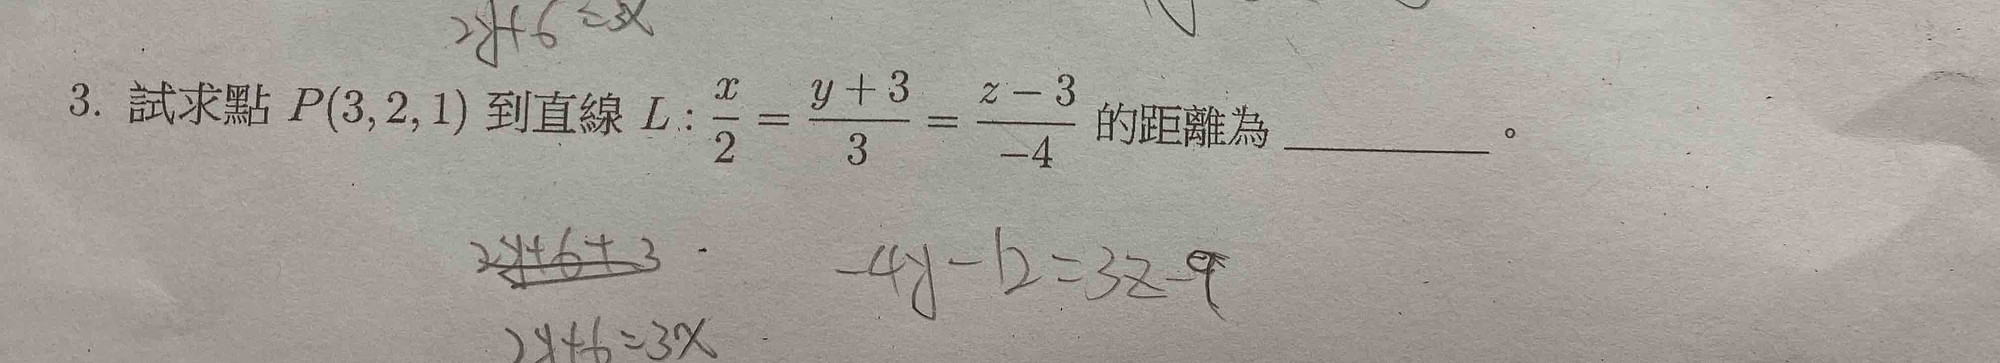 2y+6=3x
3. 試求點 P(3, 2, 1) 到直線 L : x/2 = (y+3)/3 = (z−3)/−4 的距離為 ________ 。
2y+6+3
-4y-12=3z-9
2y+6=3x